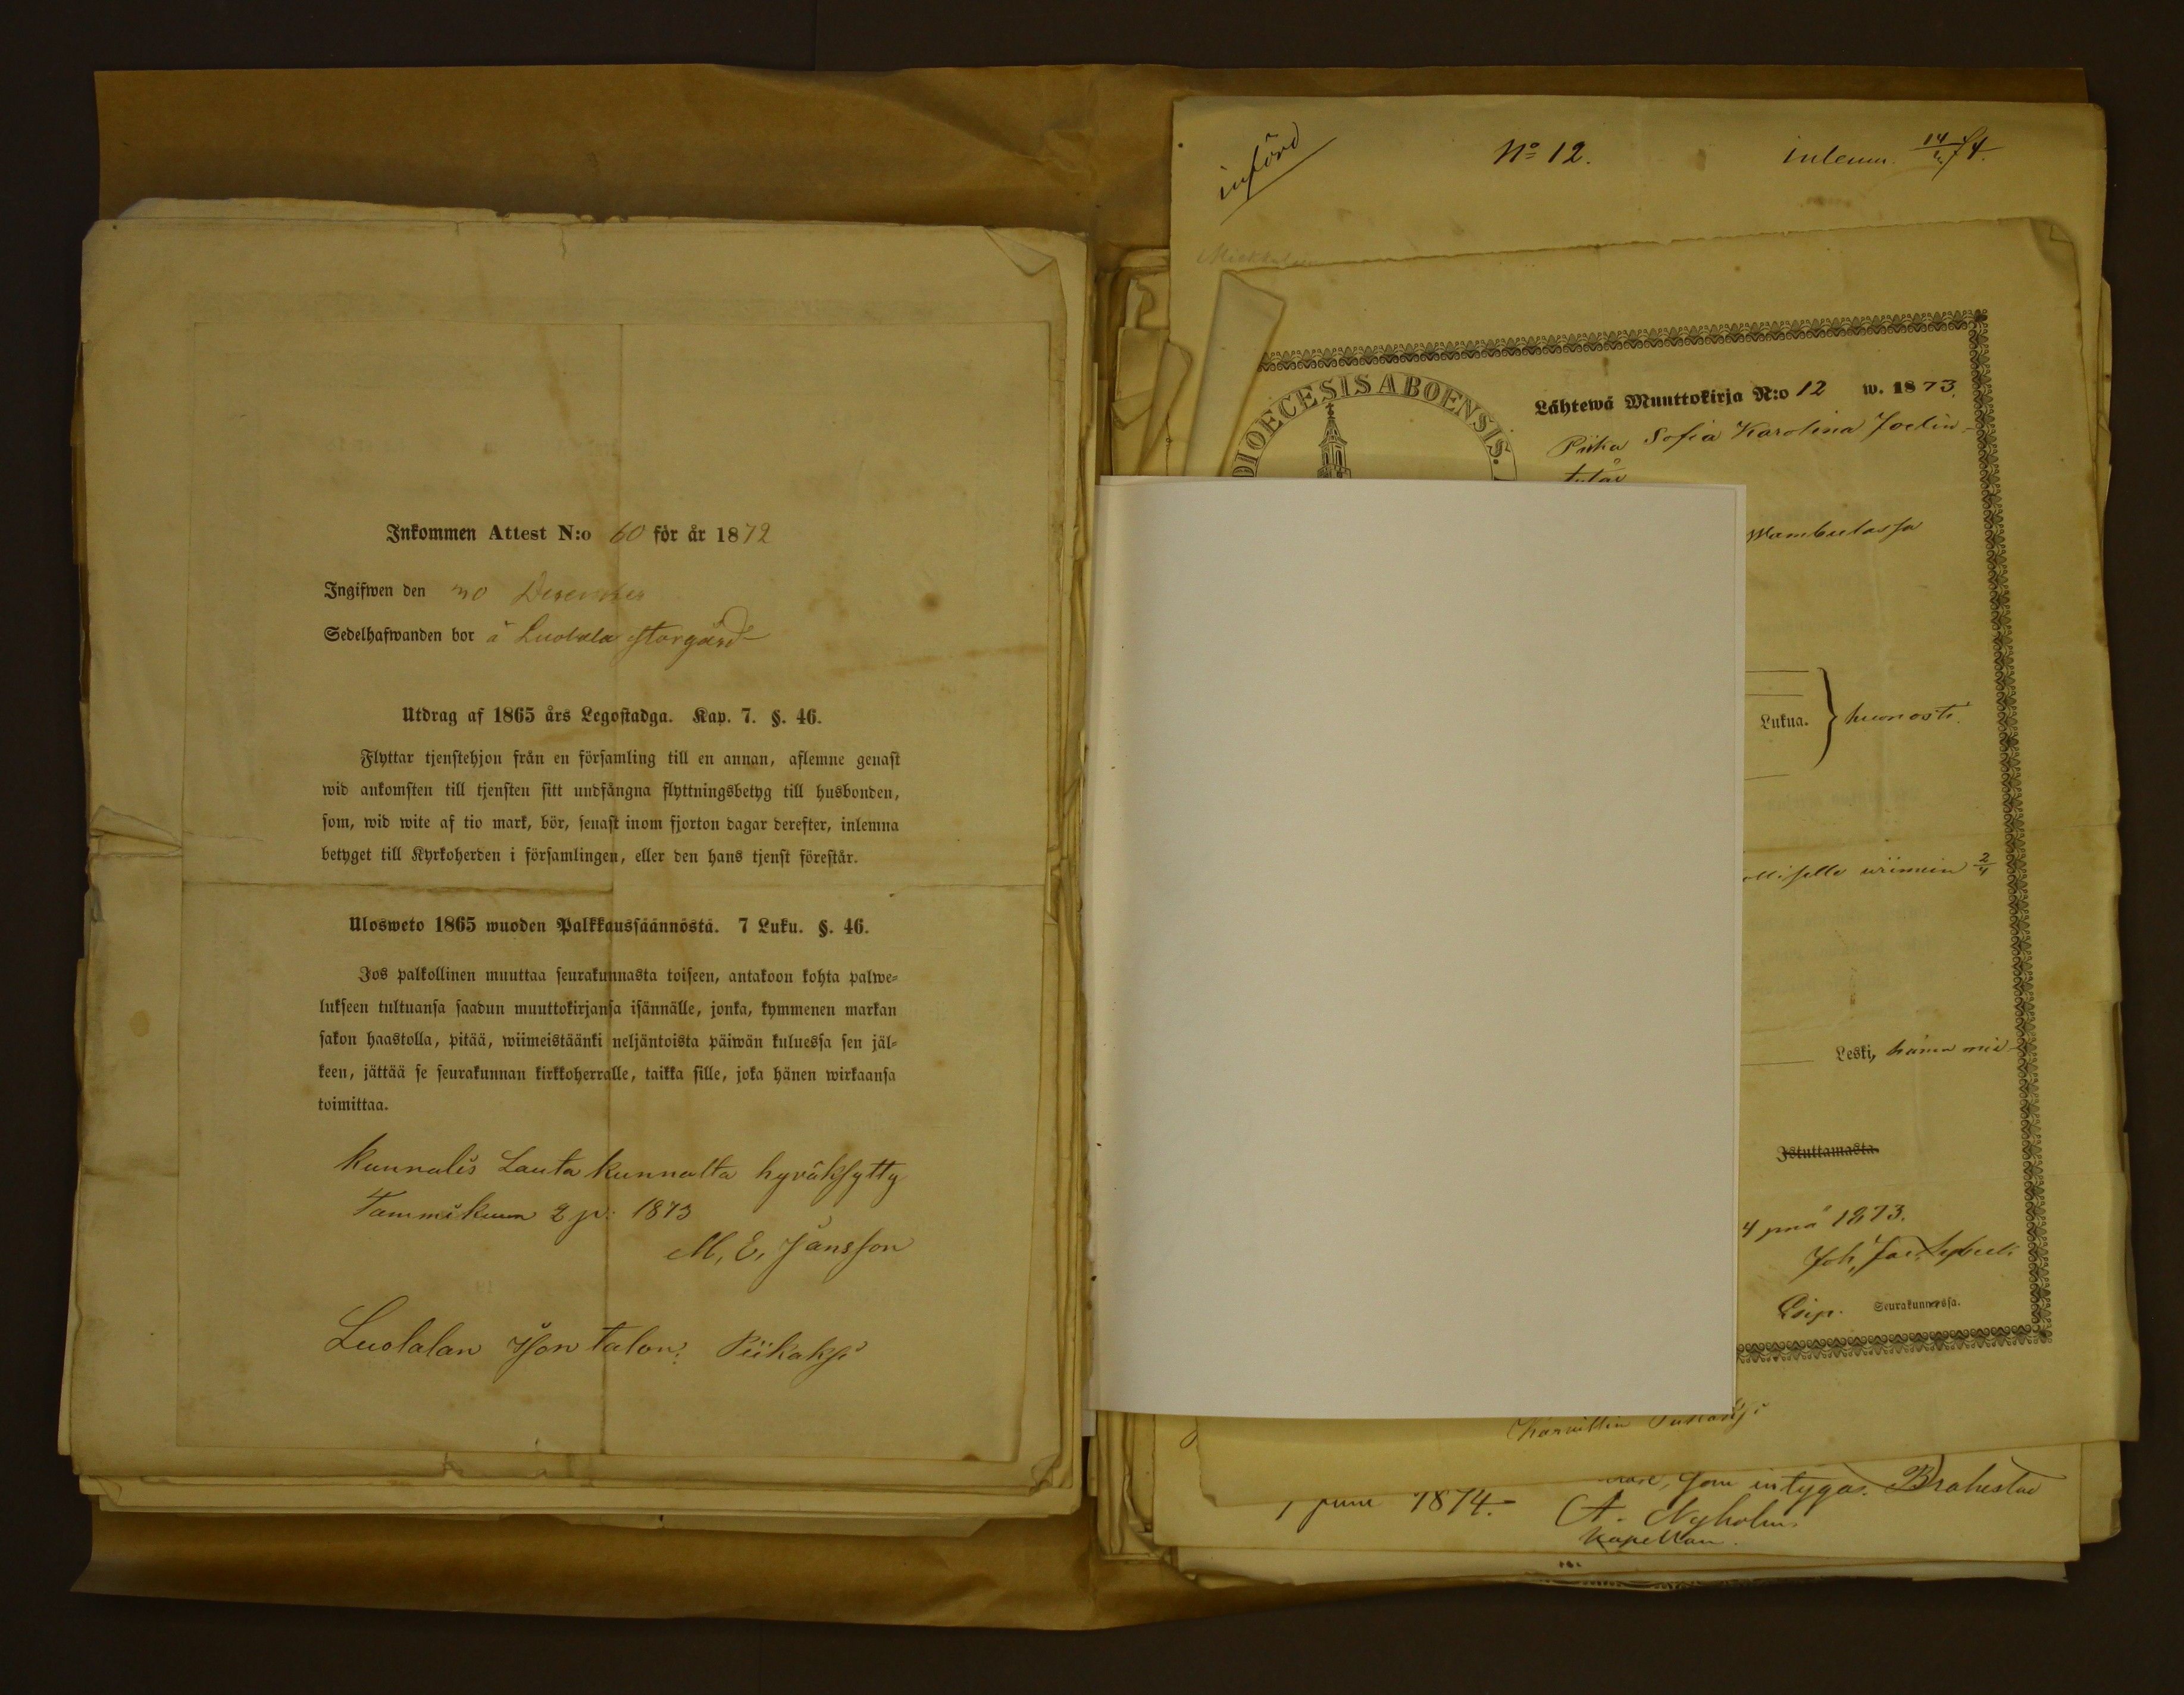 Inkommen Attest N:o 60 för år 1872
Ingifwen den 30 December
Sedelhafwanden bor å Luolala Storgård
Utdrag af 1865 års Legostadga. Kap. 7. §. 46.
Flyttar tjenstehjon från en församling till en annan, aflemne genast
wid ankomsten till tjensten sitt undfångna flyttningsbetyg till husbonden,
som, wid wite af tio mark, bör, senast inom fjorton dagar derefter, inlemna
betyget till Kyrkoherden i församlingen, eller den hans tjenst förestår.
Ulosweto 1865 wuoden Palkkaussäännöstä. 7 Luku. §. 46.
Jos palkollinen muuttaa seurakunnasta toiseen, antakoon kohta palwe-
lukseen tultuansa saadun muuttokirjansa isännälle, jonka, kymmenen markan
sakon haastolla, pitää, wiimeistäänki neljäntoista päiwän kuluessa sen jäl-
keen, jättää se seurakunnan kirkkoherralle, taikka sille, joka hänen wirkaansa
toimittaa.
Kunnalis Lautakunnalta hyväksytty
Tammikuun 2 p: 1873
M. E. Jansson
Luolalan Ison talon Piikaksi
införd
No 12.
inlemn. 14/ 74.
DIOECESIS ABOENSIS.
Lähtewä Muuttokirja N:o 12 w. 1873.
Piika Sofia Karolina Joelin-
tytär
Lukua. } kunnosti.
wiimein 2/4
Leski,
Istuttamasta.
4 pnä 1873.
Joh.
Seurakunnassa.
som intygas. Brahestad
1 Juni 1874.
A. Nyholm
Kapellan.